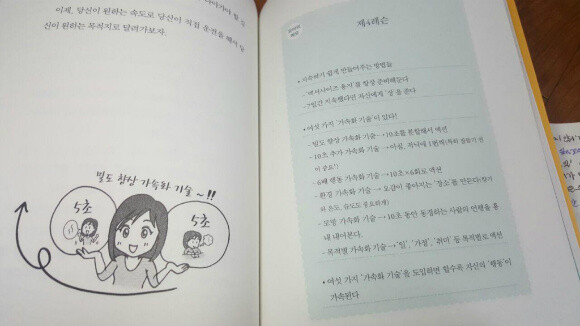 이제, 당신이 원하는 속도로 당신이 직접 운전을 해서 당
신이 원하는 목적지로 달려가보자.
밀도 향상 가속화 기술~!!
5초
5초
제4레슨
• 가속하기 쉽게 만들어주는 방법들
- '엑서사이즈 용지'를 항상 준비해둔다
- 7일간 지속했다면 자신에게 '상'을 준다
• 여섯 가지 '가속화 기술'이 있다!
- 밀도 향상 가속화 기술→10초를 통합해서 액션
- 10초 추가 가속화 기술→아침, 저녁에 1번씩(특히 잠들기 전
이 중요!)
- 6배 행동 가속화 기술→10초×6회로 액션
- 환경 가속화 기술→오감이 좋아지는 '장소'를 만든다(향기
와 온도, 습도도 중요하게)
- 모방 가속화 기술→10초 동안 동경하는 사람의 연행을 흉
내 내어본다.
- 목적별 가속화 기술→'일', '가정', '취미' 등 목적별로 액션
• 여섯 가지 '가속화 기술'을 도입하면 할수록 자신의 '행동'이
가속된다